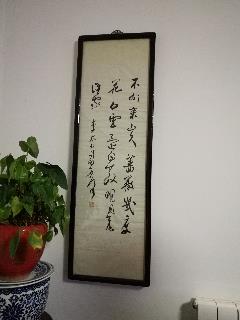 不向東山久薔薇幾度
花白雲還自散明月落
誰家 李太白